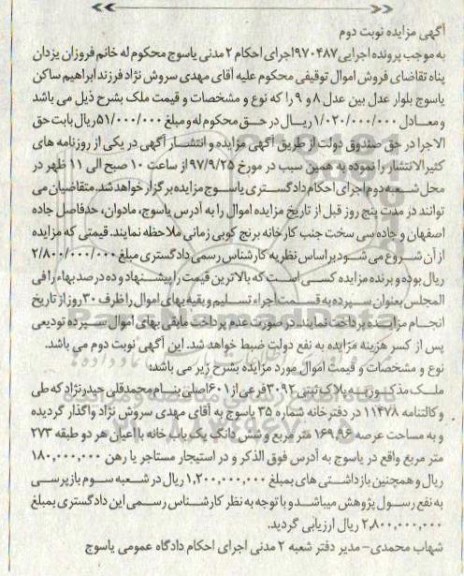 آگهی مزایده نوبت دوم
به موجب پرونده اجرایی ۹۷۰۴۸۷اجرای احکام ۲ مدنی یاسوج محکوم له خانم فروزان یزدان
پناه تقاضای فروش اموال توقیفی محکوم علیه آقای مهدی سروش نژاد فرزند ابراهیم ساکن
یاسوج بلوار عدل بین عدل ۸ و ۹ را که نوع و مشخصات و قیمت ملک بشرح ذیل می باشد
و معادل ۱/۰۲۰/۰۰۰/۰۰۰ ریال در حق محکوم له و مبلغ ۵۱/۰۰۰/۰۰۰ریال بابت حق
الاجرا در حق صندوق دولت از طریق آگهی مزایده و انتشار آگهی در یکی از روزنامه های
کثیرالانتشار را نموده به همین سبب در مورخ ۹۷/۹/۲۵ از ساعت ۱۰ صبح الی ۱۱ ظهر در
محل شعبه دوم اجرای احکام دادگستری یاسوج مزایده برگزار خواهد شد. متقاضیان می
توانند در مدت پنج روز قبل از تاریخ مزایده اموال را به آدرس یاسوج، مادوان، حدفاصل جاده
اصفهان و جاده سی سخت جنب کارخانه برنج کوبی زمانی ملاحظه نمایند. قیمتی که مزایده
از آن شروع می شود بر اساس نظریه کارشناس رسمی دادگستری مبلغ ۲/۸۰۰/۰۰۰/۰۰۰
ریال بوده و برنده مزایده کسی است که بالاترین قیمت را پیشنهاد و ده درصد بهاء را فی
المجلس بعنوان سپرده به قسمت اجراء تسلیم و بقیه بهای اموال را ظرف ۳۰ روز از تاریخ
انجام مزایده پرداخت نمایند. در صورت عدم پرداخت مابقی بهای اموال سپرده تودیعی
پس از کسر هزینه مزایده به نفع دولت ضبط خواهد شد. این آگهی نوبت دوم می باشد.
نوع و مشخصات و قیمت اموال مورد مزایده بشرح زیر می باشد:
ملک مذکور به پلاک ثبتی ۳۰۹۲ فرعی از ۶۰۱ اصلی بنام محمدقلی حیدرنژاد که طی
وکالتنامه ۱۱۴۷۸ در دفترخانه شماره ۳۵ یاسوج به آقای مهدی سروش نژاد واگذار گردیده
و به مساحت عرصه ۱۶۹.۹۶ متر مربع و شش دانگ یک باب خانه با اعیان هر دو طبقه ۲۷۳
متر مربع واقع در یاسوج به آدرس فوق الذکر و در استیجار مستاجر با رهن ۱۸۰,۰۰۰,۰۰۰
ریال و همچنین بازداشتی های بمبلغ ۱,۲۰۰,۰۰۰,۰۰۰ ریال در شعبه سوم بازپرسی
به نفع رسول پژوهش میباشد و با توجه به نظر کارشناس رسمی این دادگستری بمبلغ
۲,۸۰۰,۰۰۰,۰۰۰ ریال ارزیابی گردید.
شهاب محمدی- مدیر دفتر شعبه ۲ مدنی اجرای احکام دادگاه عمومی یاسوج